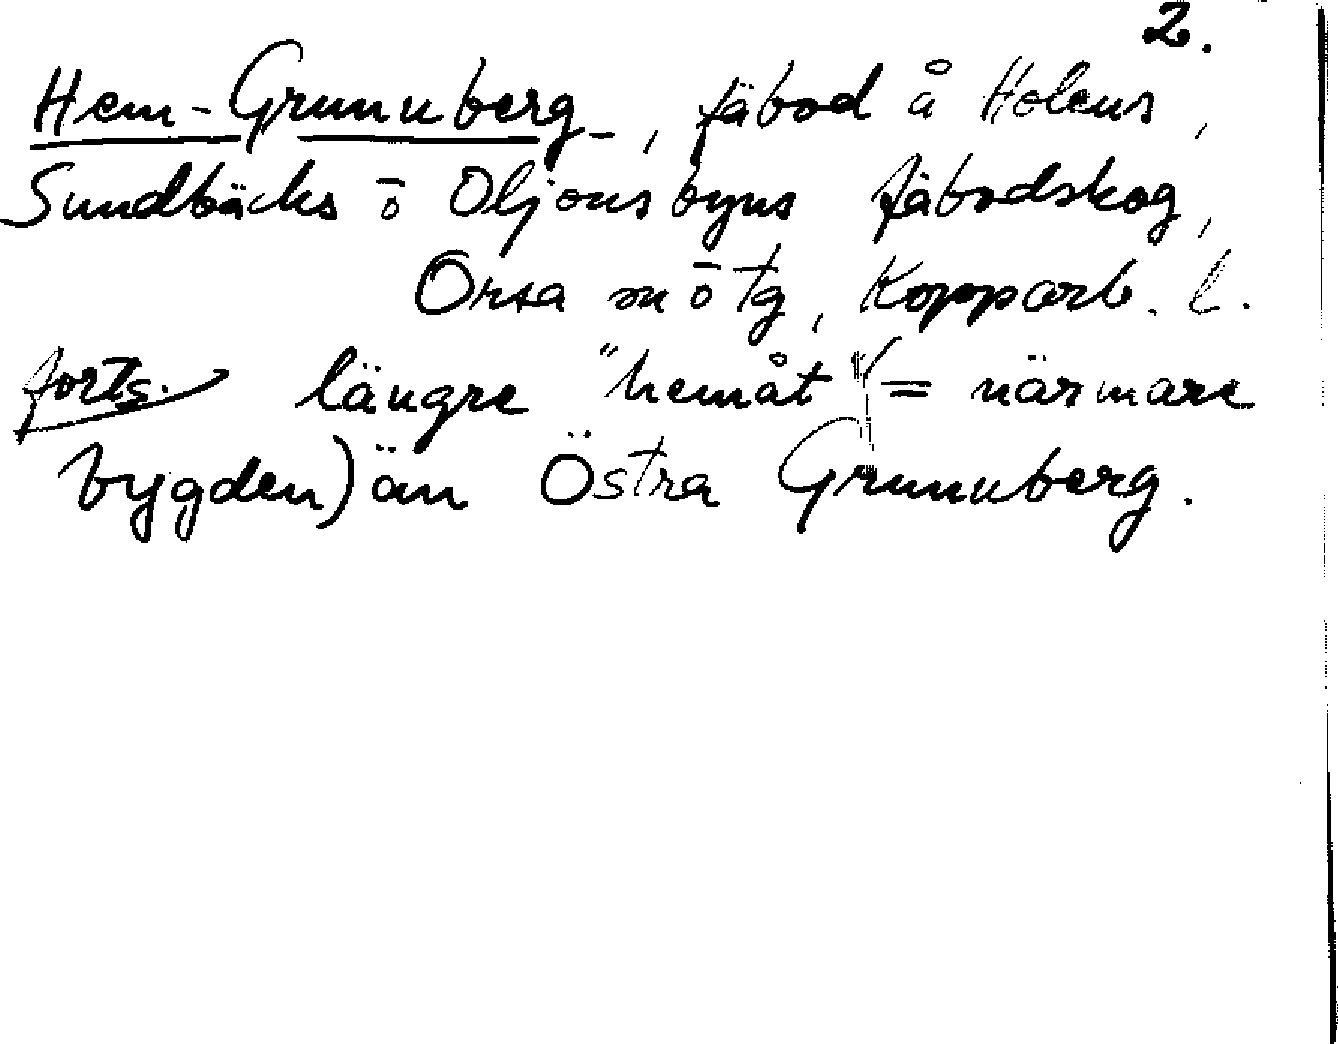 2.
Hem-Grunuberg, fäbod å Holens,
Sundbäcks o Oljonsbyns fäbodskog,
Orsa sn o tg, Kopparb. l.
forts. längre "hemåt" (= närmare
bygden) än Östra Grunuberg.